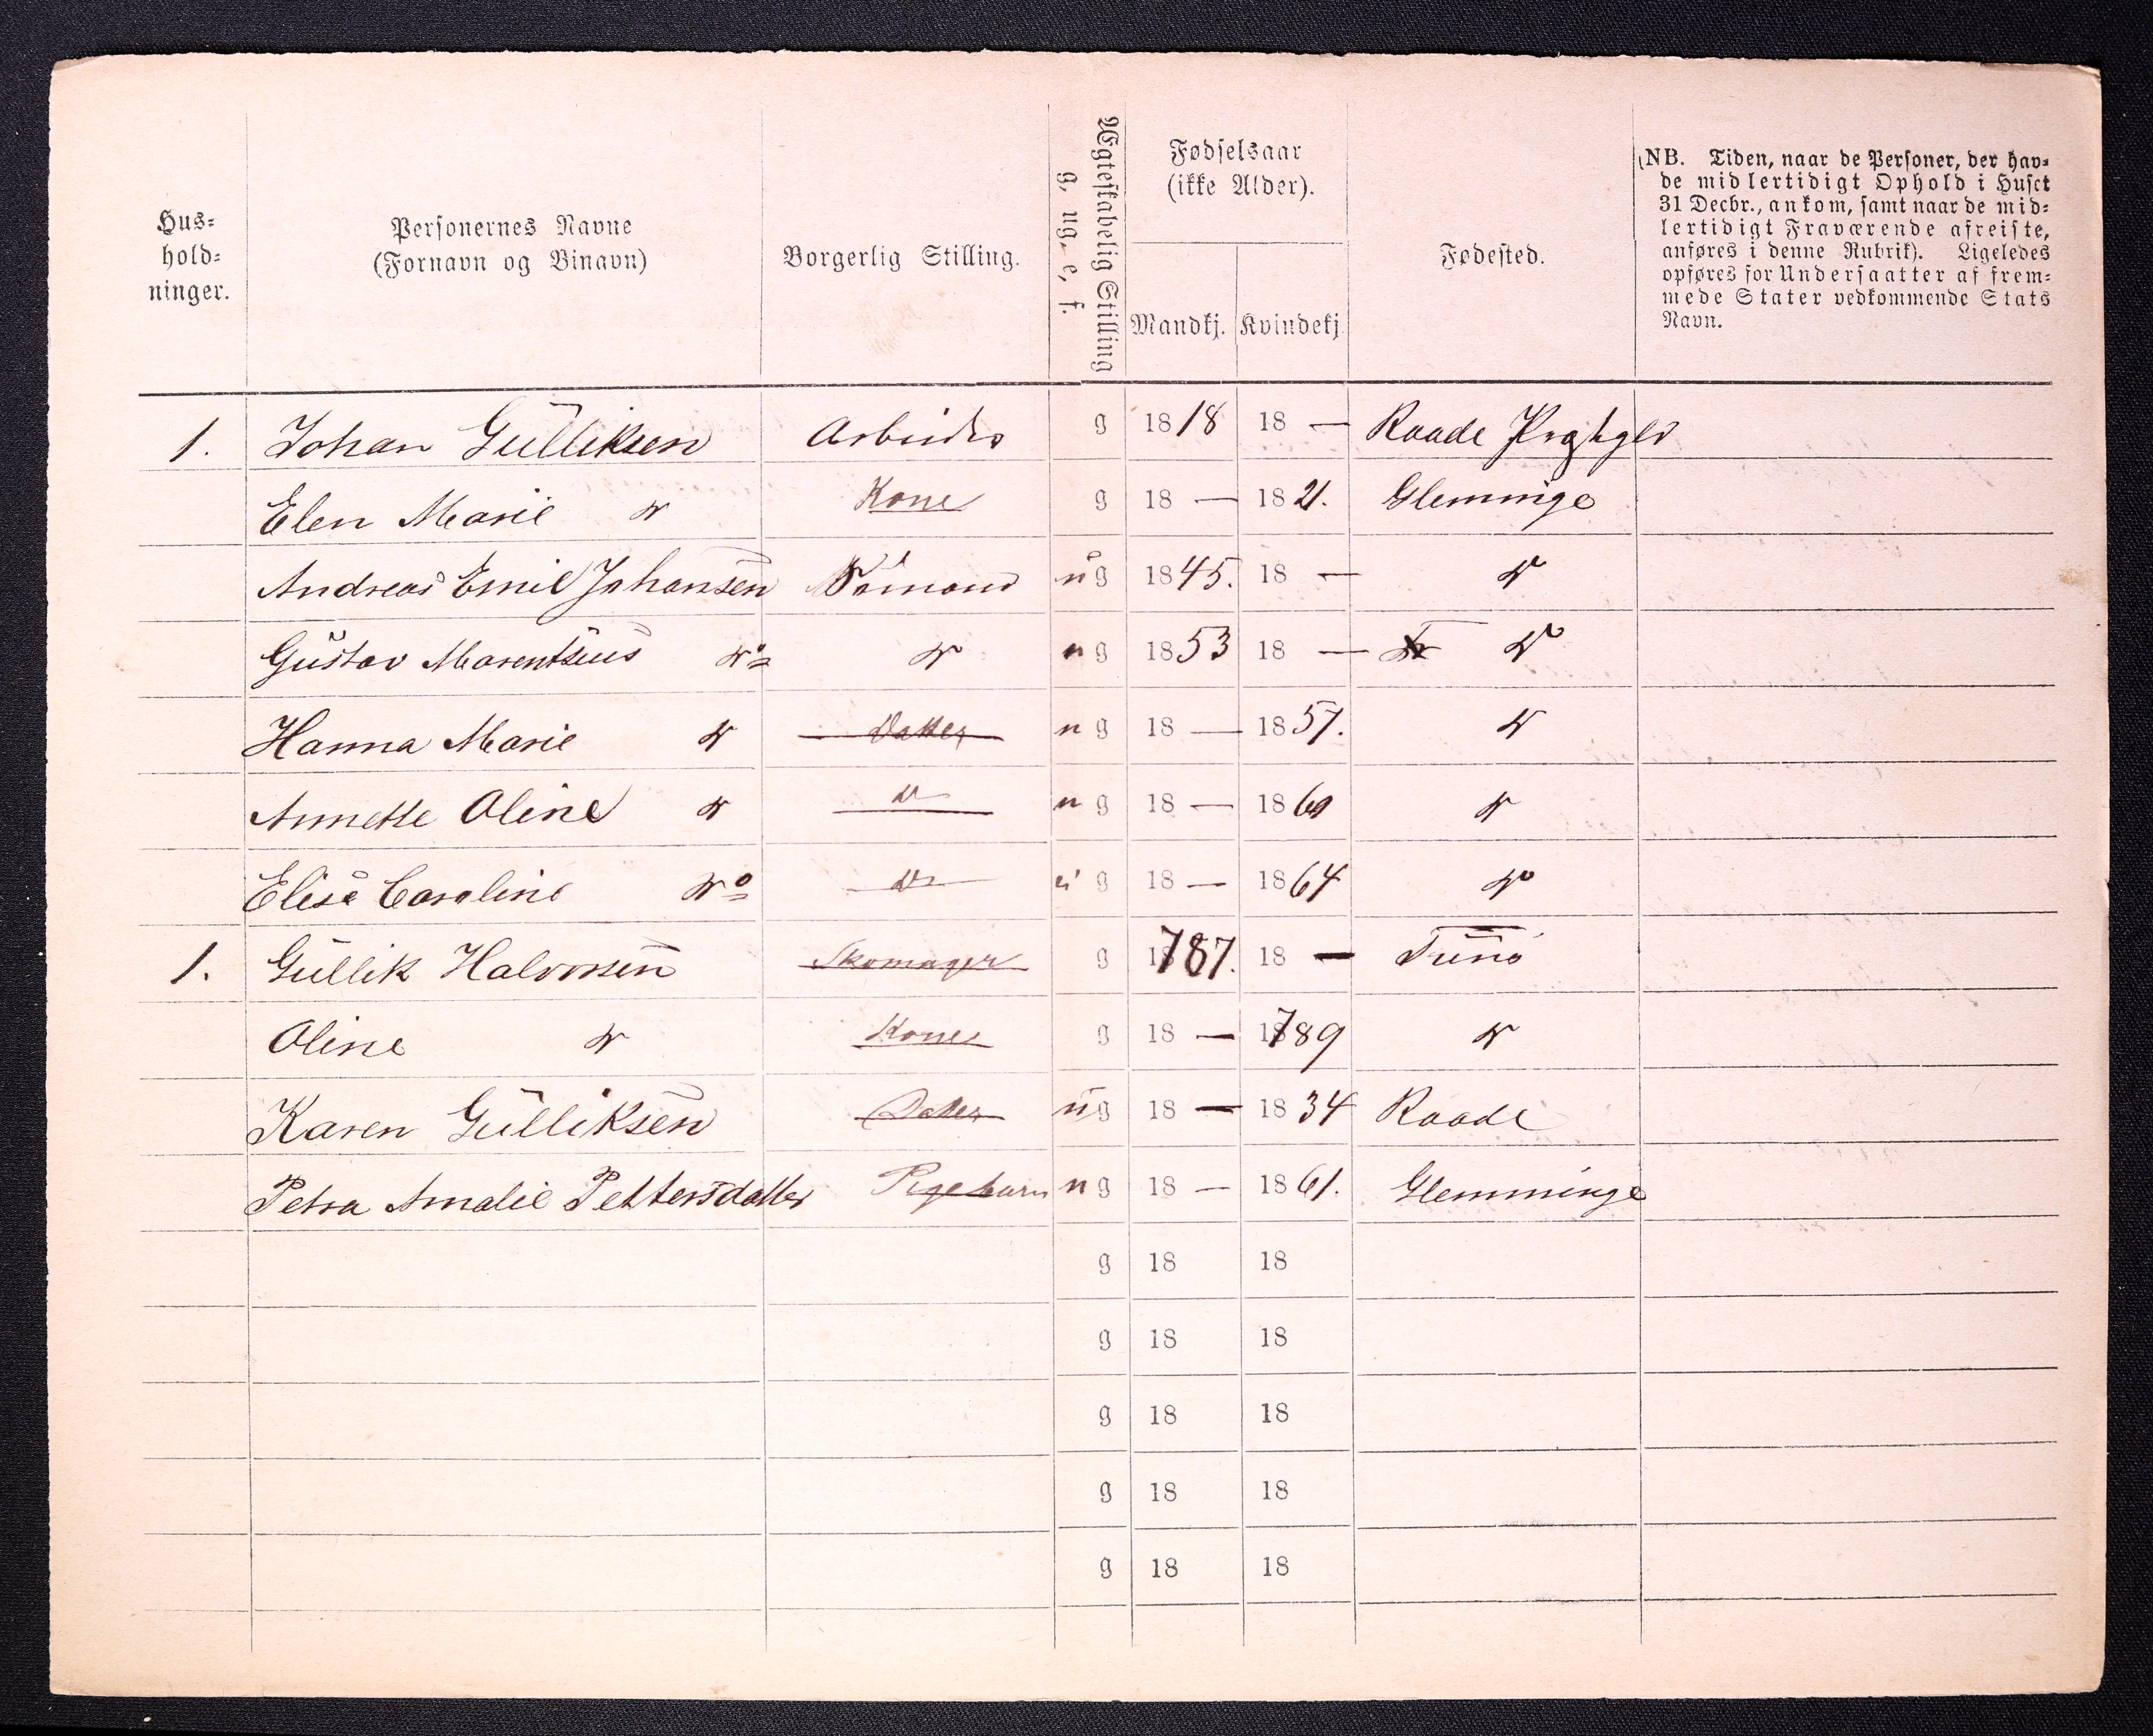 Hus-
hold-
ninger.
Personernes Navne
(Fornavn og Binavn)
Borgerlig Stilling.
Ægteskabelig Stilling
g, ug, e, f.
Fødselsaar
(ikke Alder).
Mandkj. Kvindekj
Fødested.
(NB. Tiden, naar de Personer, der hav-
de midlertidigt Ophold i Huset
31 Decbr., ankom, samt naar de mid-
lertidigt Fraværende afreiste,
anføres i denne Rubrik). Ligeledes
opføres for Undersaatter af frem-
mede Stater vedkommende Stats
Navn.
1. Johan Gulliksen Arbeider g 1818 18 — Raade Prgjld
Elen Marie do Kone g 18 — 1821. Glemminge
Andreas Emil Johansen Sömand ug 1845. 18 — do
Gustav Marentsius do do ug 1853 18 — do
Hanna Marie do Datter ug 18 — 1857. do
Annette Oline do do ug 18 — 18 do
Elise Caroline do do ug 18 — 1864 do
1. Gullik Halvorsen Skomager g 1787. 18 — Tunö
Oline do Kone g 18 — 1789 do
Karen Gulliksen Datter ug 18 — 1834 Raade
Petra Amalie Pettersdatter Pigebarn ug 18 — 1861. Glemminge
g 18 18
g 18 18
g 18 18
g 18 18
g 18 18